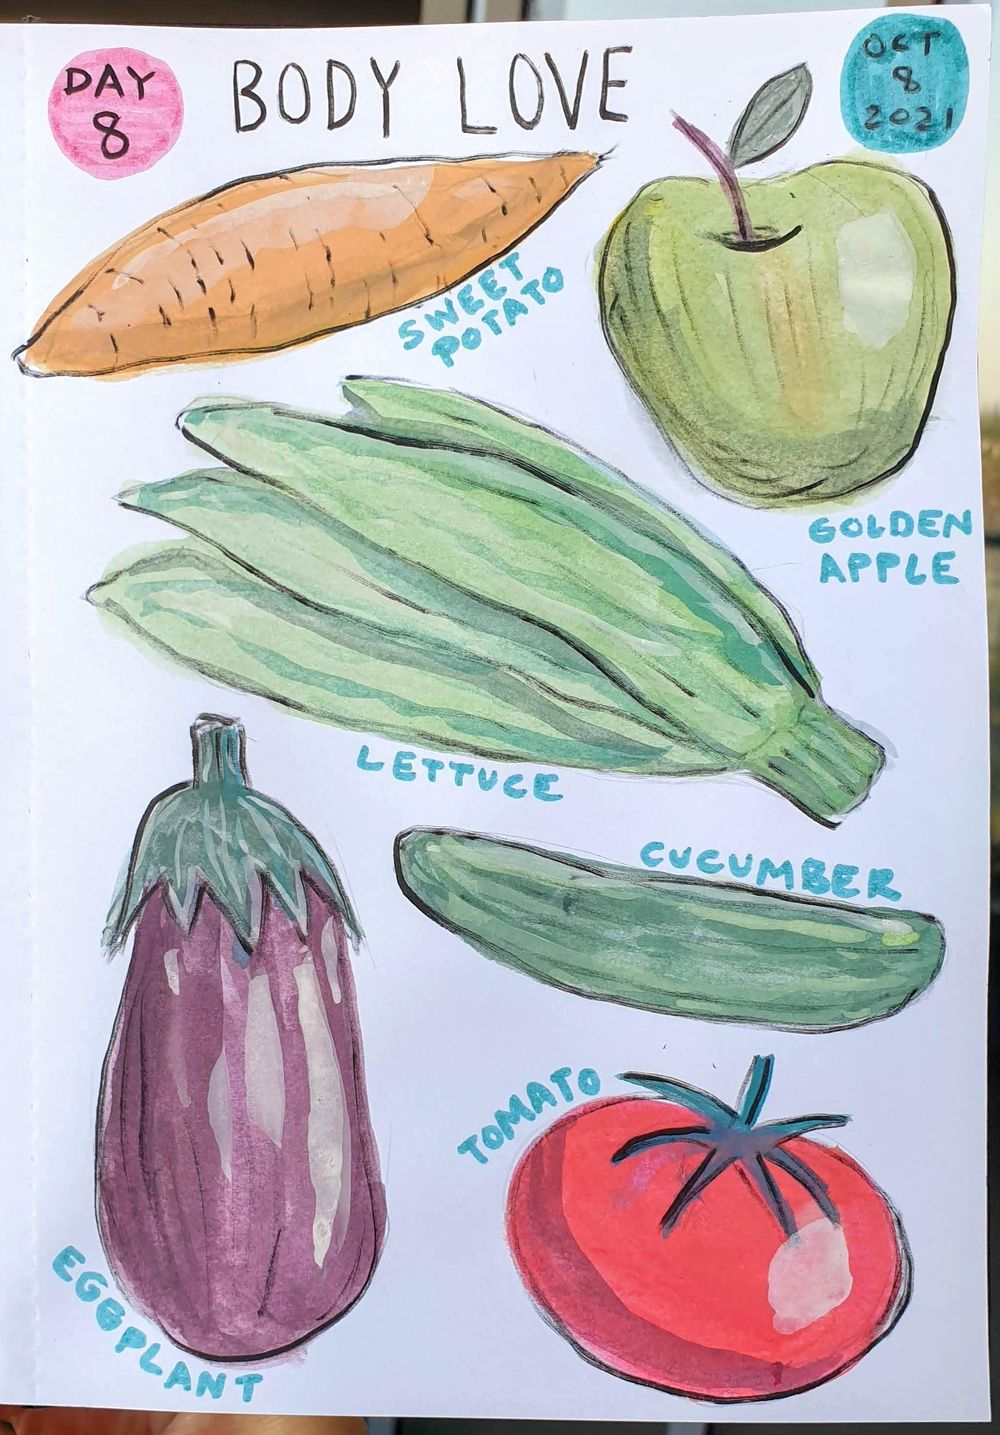 DAY
8
BODY LOVE
OCT
8
2021
SWEET
POTATO
GOLDEN
APPLE
LETTUCE
CUCUMBER
TOMATO
EGGPLANT